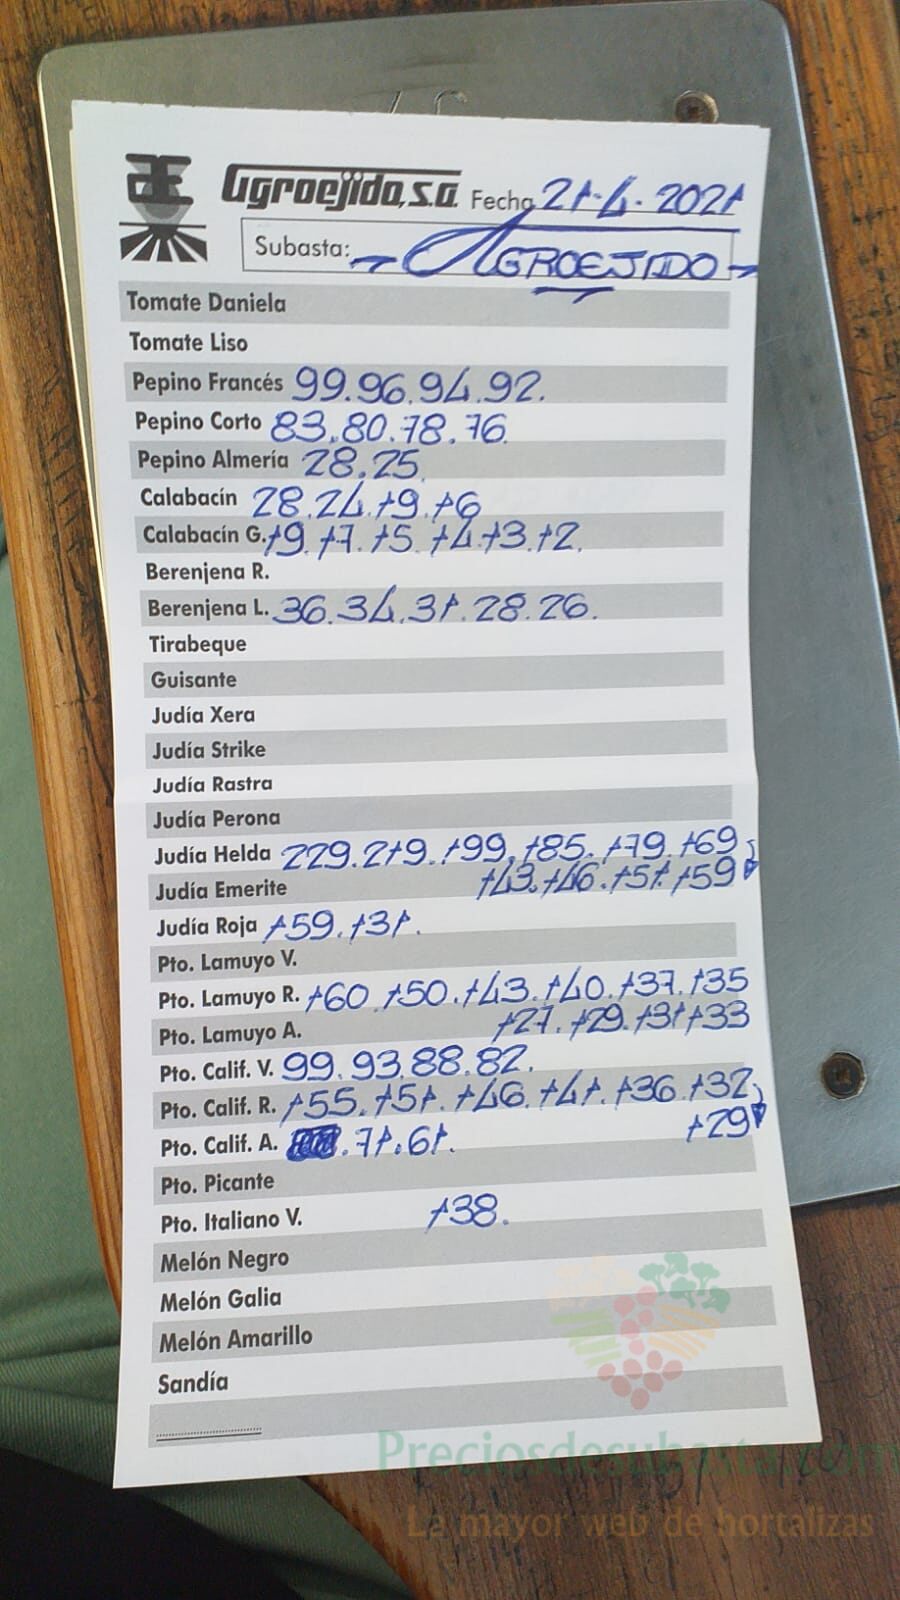 Agroejido, S.A. Fecha 21-4-2021
Subasta: - AGROEJIDO -
Tomate Daniela
Tomate Liso
Pepino Francés 99.96.94.92.
Pepino Corto 83.80.78.76
Pepino Almería 28.25
Calabacín 28.24.19.16
Calabacín G. 19.17.15.14.13.12.
Berenjena R.
Berenjena L. 36.34.31.28.26.
Tirabeque
Guisante
Judía Xera
Judía Strike
Judía Rastra
Judía Perona
Judía Helda 229.219.199.185.179.169
Judía Emerite 143.146.151.159
Judía Roja 159.131.
Pto. Lamuyo V.
Pto. Lamuyo R. 160.150.143.140.137.135
Pto. Lamuyo A. 127.129.131.133
Pto. Calif. V. 99.93.88.82.
Pto. Calif. R. 155.151.146.141.136.132
Pto. Calif. A. .71.61. 129
Pto. Picante
Pto. Italiano V. 138.
Melón Negro
Melón Galia
Melón Amarillo
Sandía
Preciosdesubasta.com
La mayor web de hortalizas